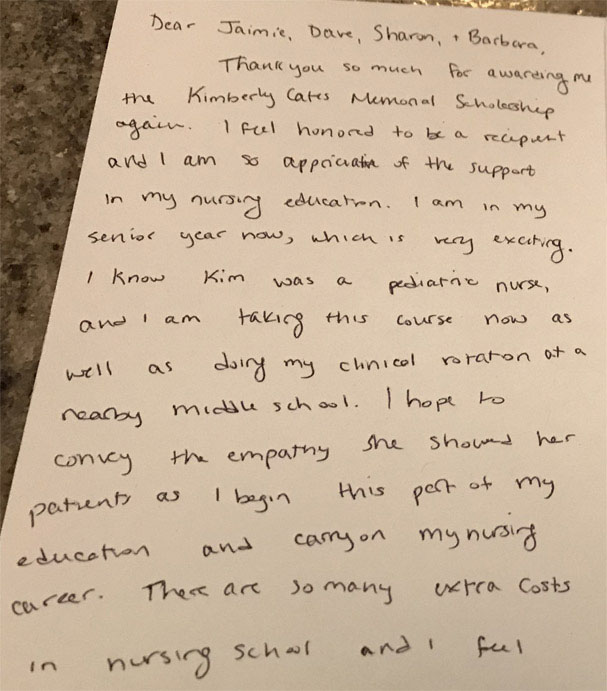 Dear Jaimie, Dave, Sharon, + Barbara,
Thank you so much for awarding me
the Kimberly Cates Memorial Scholarship
again. I feel honored to be a recipient
and I am so appriciative of the support
in my nursing education. I am in my
senior year now, which is very exciting.
I know Kim was a pediatric nurse,
and I am taking this course now as
well as doing my clinical rotation at a
nearby middle school. I hope to
convey the empathy she showed her
patients as I begin this part of my
education and carry on my nursing
career. There are so many extra costs
in nursing school and I feel